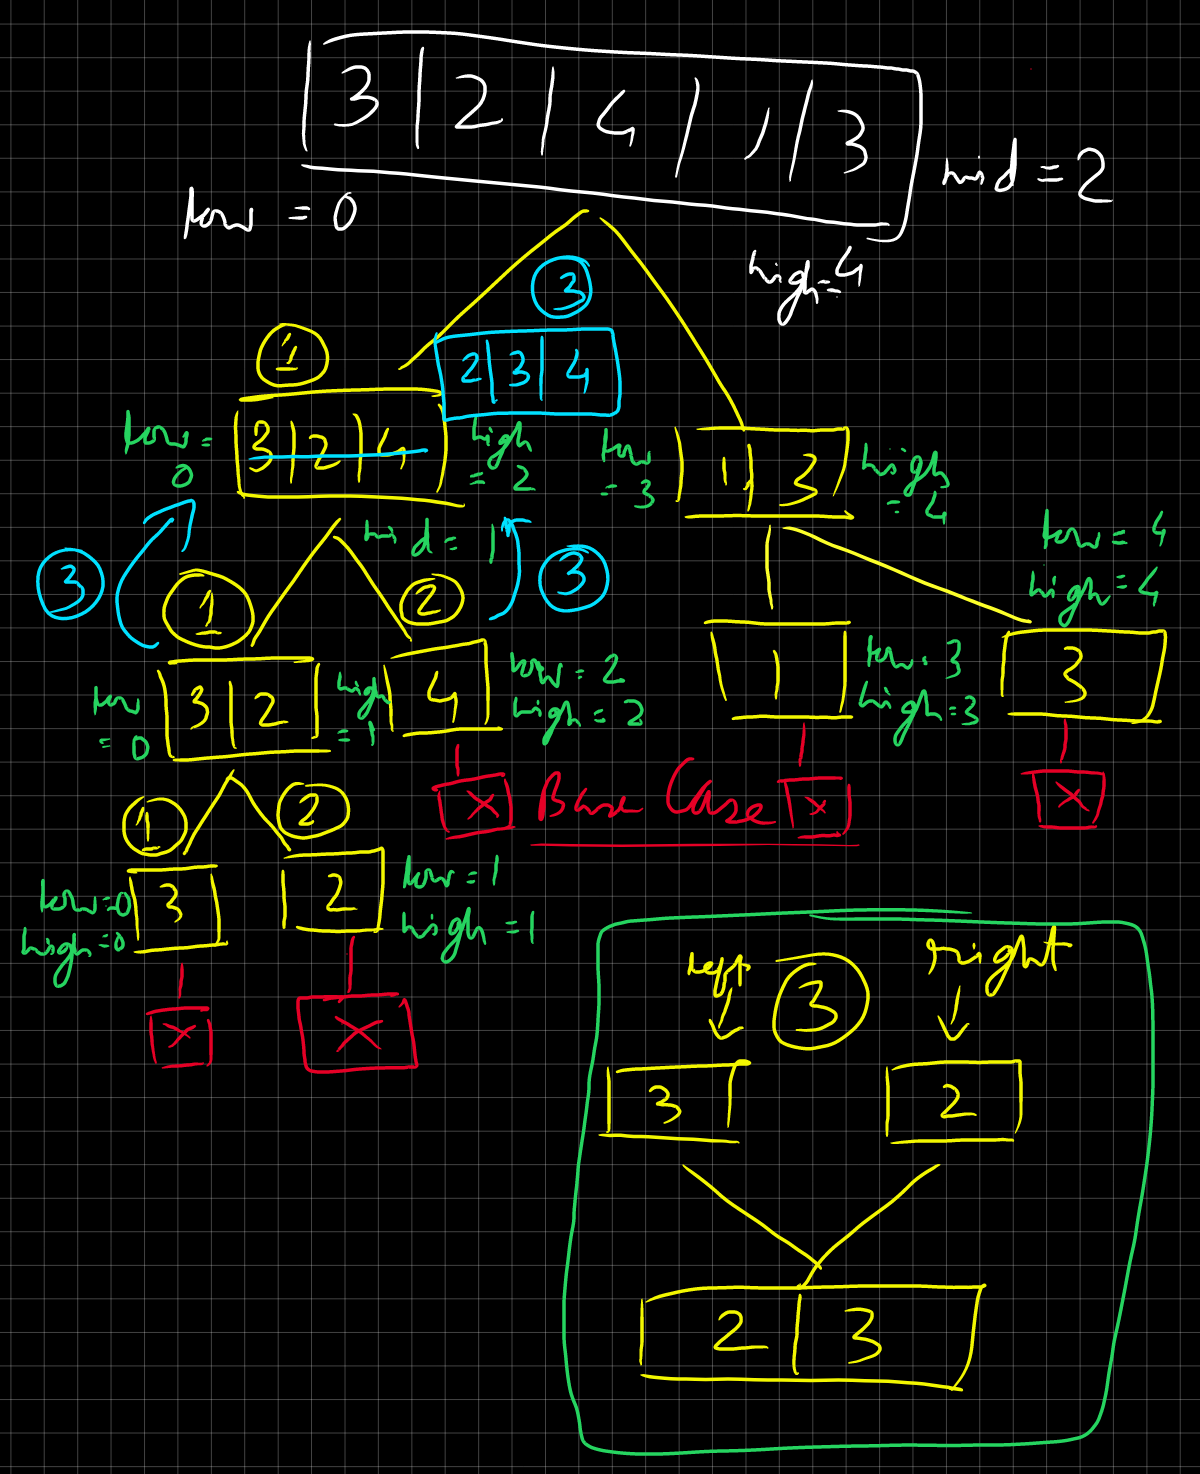 3 | 2 | 4 | 1 | 3
mid = 2
low = 0
high = 4
3
1
2 | 3 | 4
low = 0
3 | 2 | 4
high = 2
low = 3
1 | 3
high = 4
mid = 1
low = 4
high = 4
3
1
2
3
low = 0
3 | 2
high = 1
4
low = 2
high = 2
1
low = 3
high = 3
3
X
Base Case
X
X
1
2
low = 0
high = 0
3
2
low = 1
high = 1
X
X
left
3
right
3
2
2 | 3